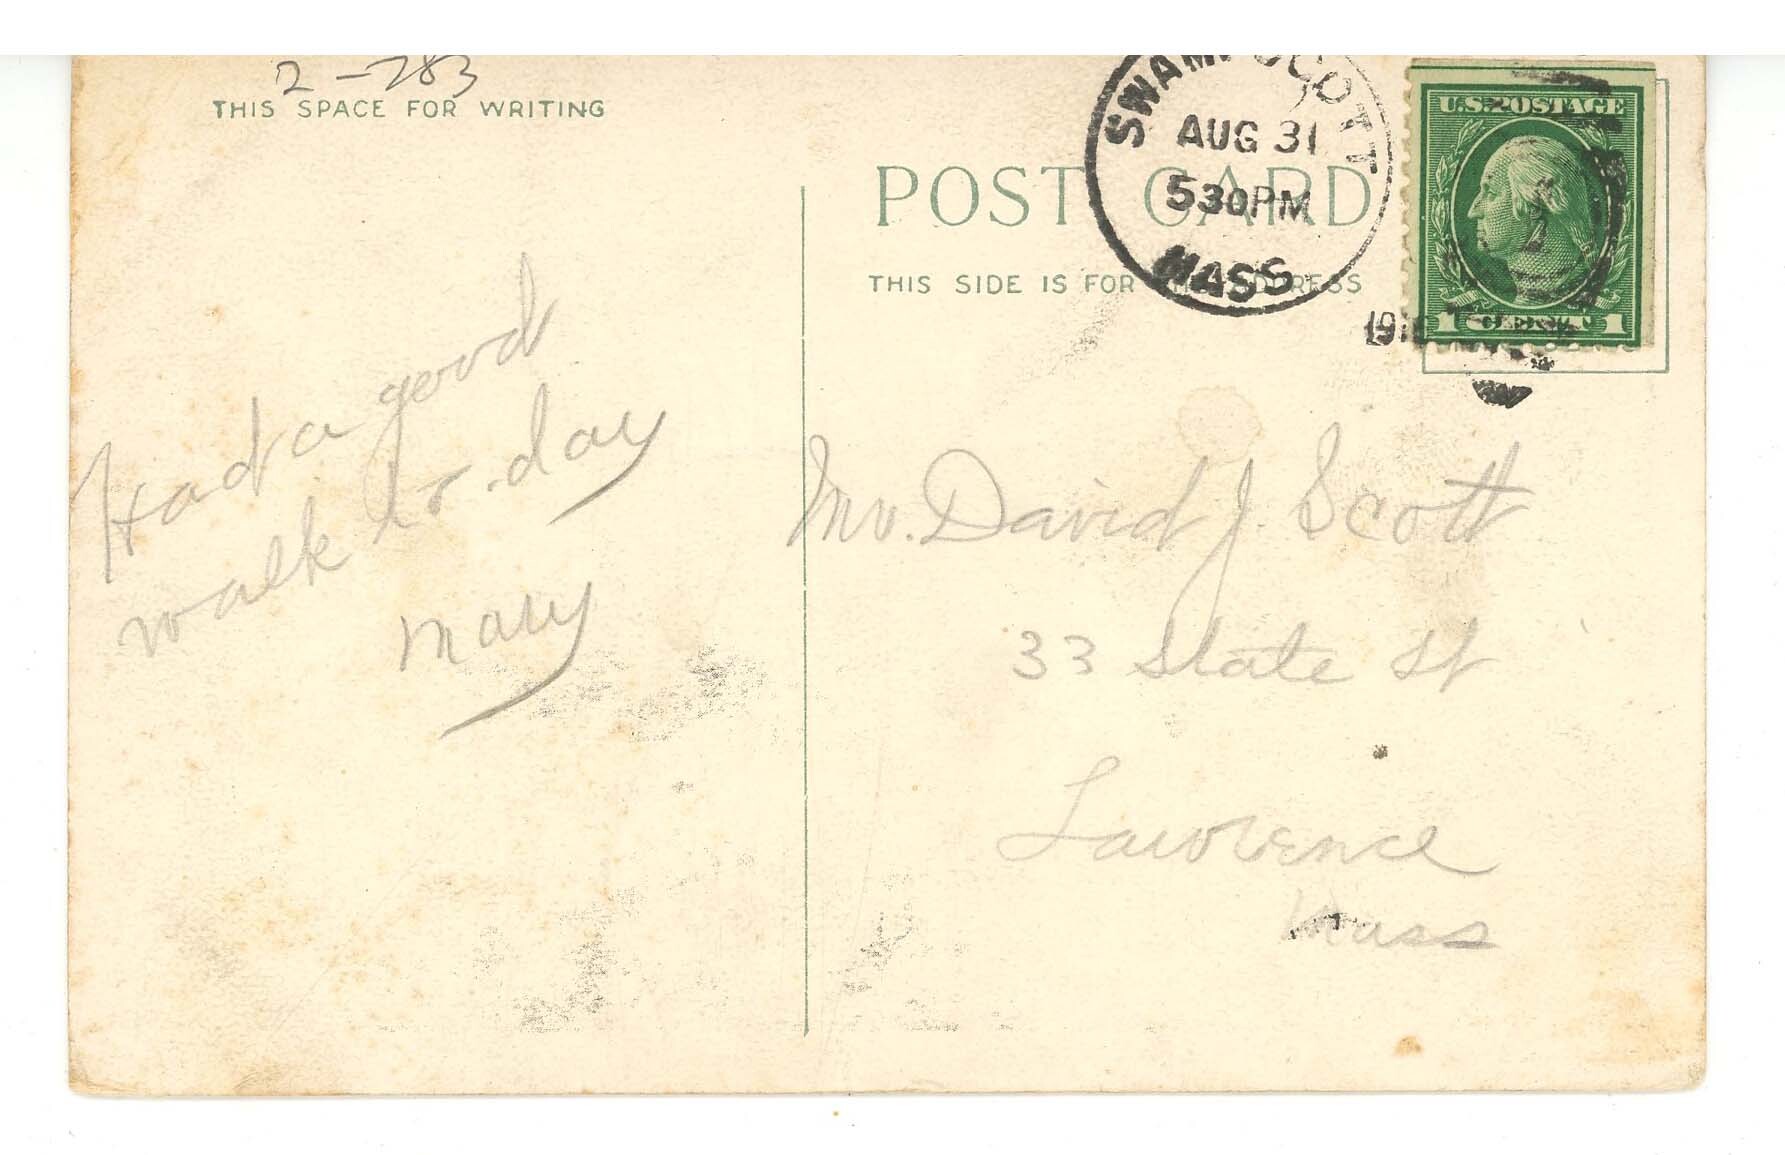 2-783
THIS SPACE FOR WRITING
SWAMPSCOTT
AUG 31
530PM
MASS
U.S. POSTAGE
1 CENT 1
POST CARD
THIS SIDE IS FOR THE ADDRESS
Had a good
walk to-day
Mary
Mr. David J. Scott
33 State St
Lawrence
Mass